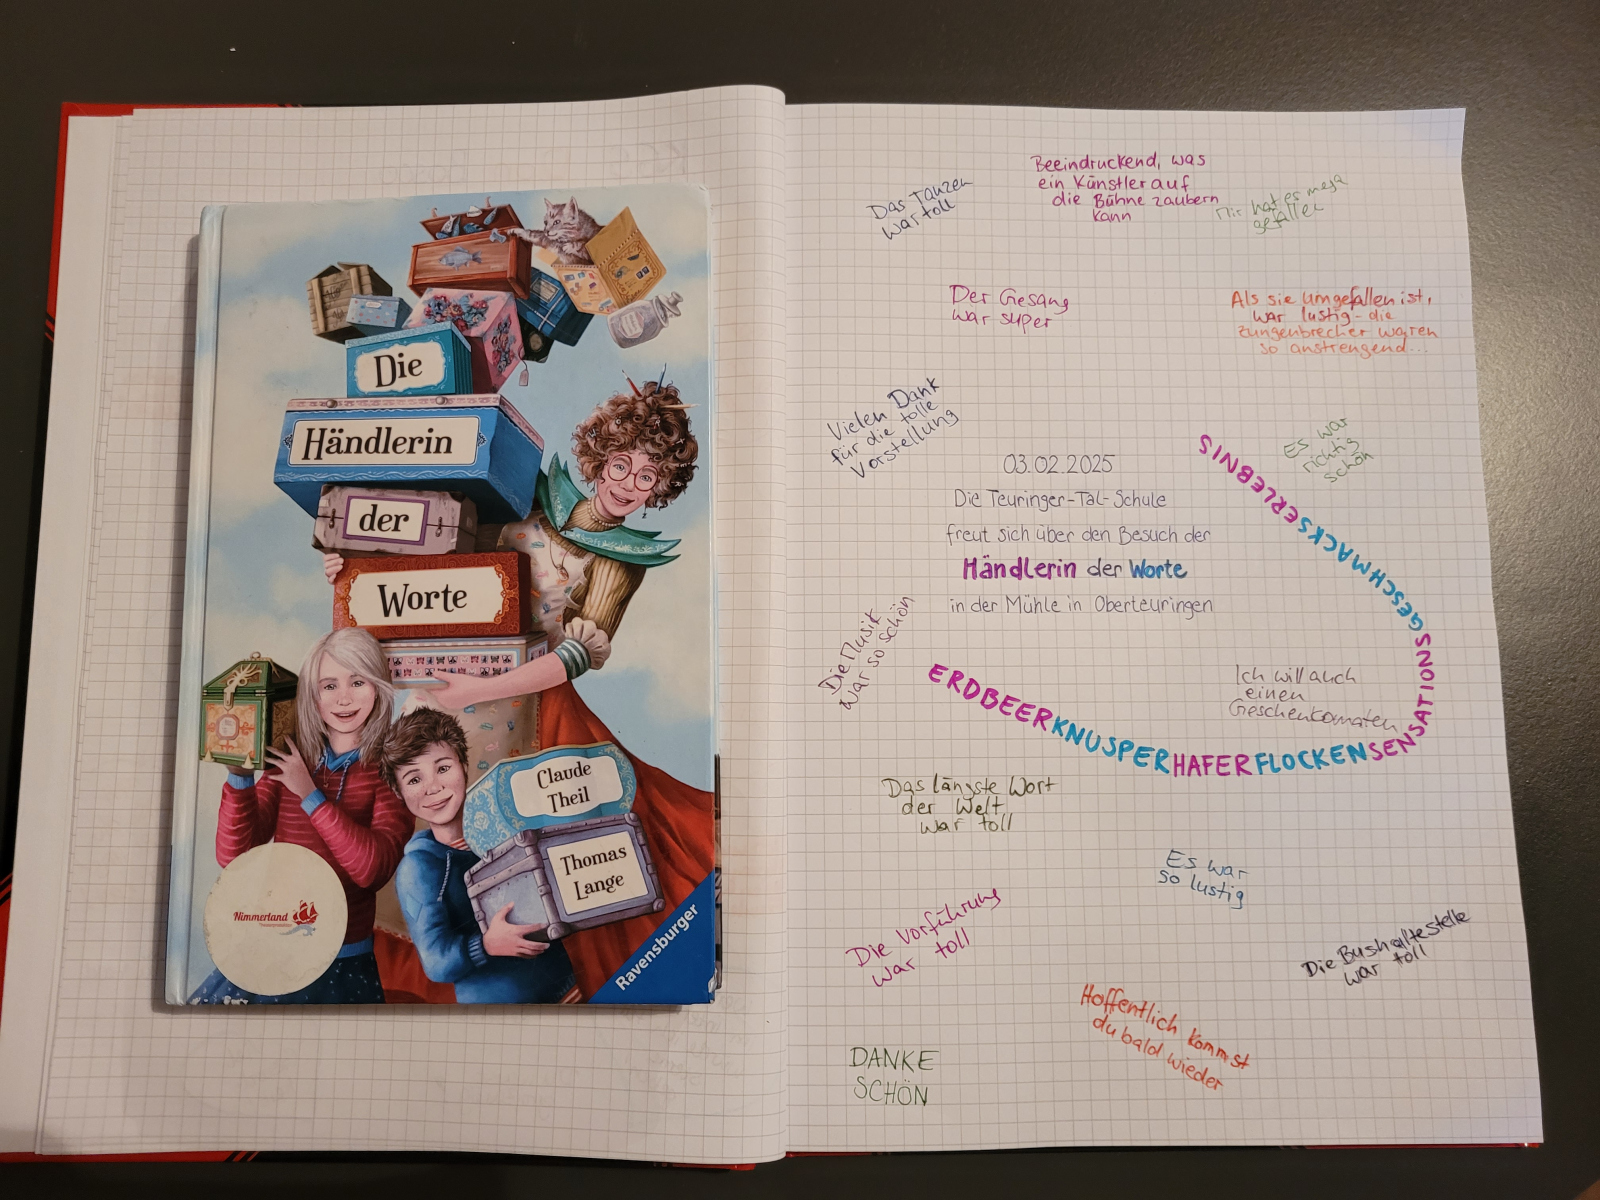 Die
Händlerin
der
Worte
Claude
Theil
Thomas
Lange
Nimmerland
Ravensburger
Beeindruckend, was
ein Künstler auf
die Bühne zaubern
kann
Das Tanzen
war toll
Mir hat es mega
gefallen
Der Gesang
war super
Als sie umgefallen ist,
war lustig - die
Zungenbrecher waren
so anstrengend...
Vielen Dank
für die tolle
Vorstellung
Es war
richtig
schön
03.02.2025
Die Teuringer-Tal-Schule
freut sich über den Besuch der
Händlerin der Worte
in der Mühle in Oberteuringen
Die Musik
war so schön
ERDBEERKNUSPERHAFERFLOCKENSENSATIONSGESCHMACKSERLEBNIS
Ich will auch
einen
Geschenkomaten
Das längste Wort
der Welt
war toll
Es war
so lustig
Die Vorführung
war toll
Die Bushaltestelle
war toll
Hoffentlich kommst
du bald wieder
DANKE
SCHÖN